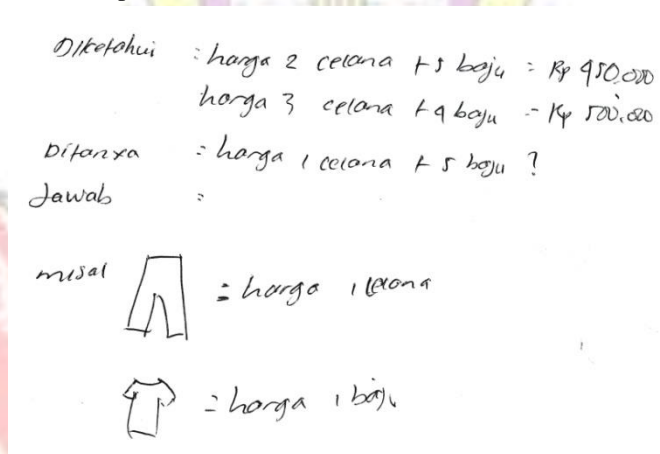 Diketahui : harga 2 celana + 5 baju = Rp 450.000
harga 3 celana + 4 baju = Rp 500.000
Ditanya : harga 1 celana + 5 baju ?
Jawab :
misal = harga 1 celana
= harga 1 baju